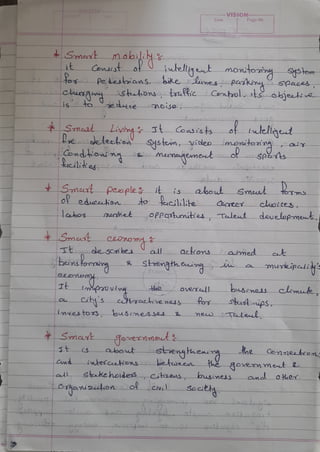 VISION
Date
Page No.
* Smart mobility:
it consist of intelligent monitoring system
for pedestrians, bike lanes, parking spaces,
charging stations, traffic control. its objective
is to reduce noise.
* Smart Living: It Consists of intelligent
fire detection system, video monitoring, air
Conditioning & management of sports
facilities.
* Smart people: it is about smart forms
of education to facilitate career choices,
labor market opportunities, Talent development.
* Smart economy:
It describes all actions aimed at
transforming & strengthening in a municipality's
economy
It improving the overall business climate,
a city's attractiveness for start-ups,
investors, businesses & new Talent.
* Smart government:
It is about strengthening the connections
and interactions between the government &
all stakeholders, citizens, business and other
organization of civil society